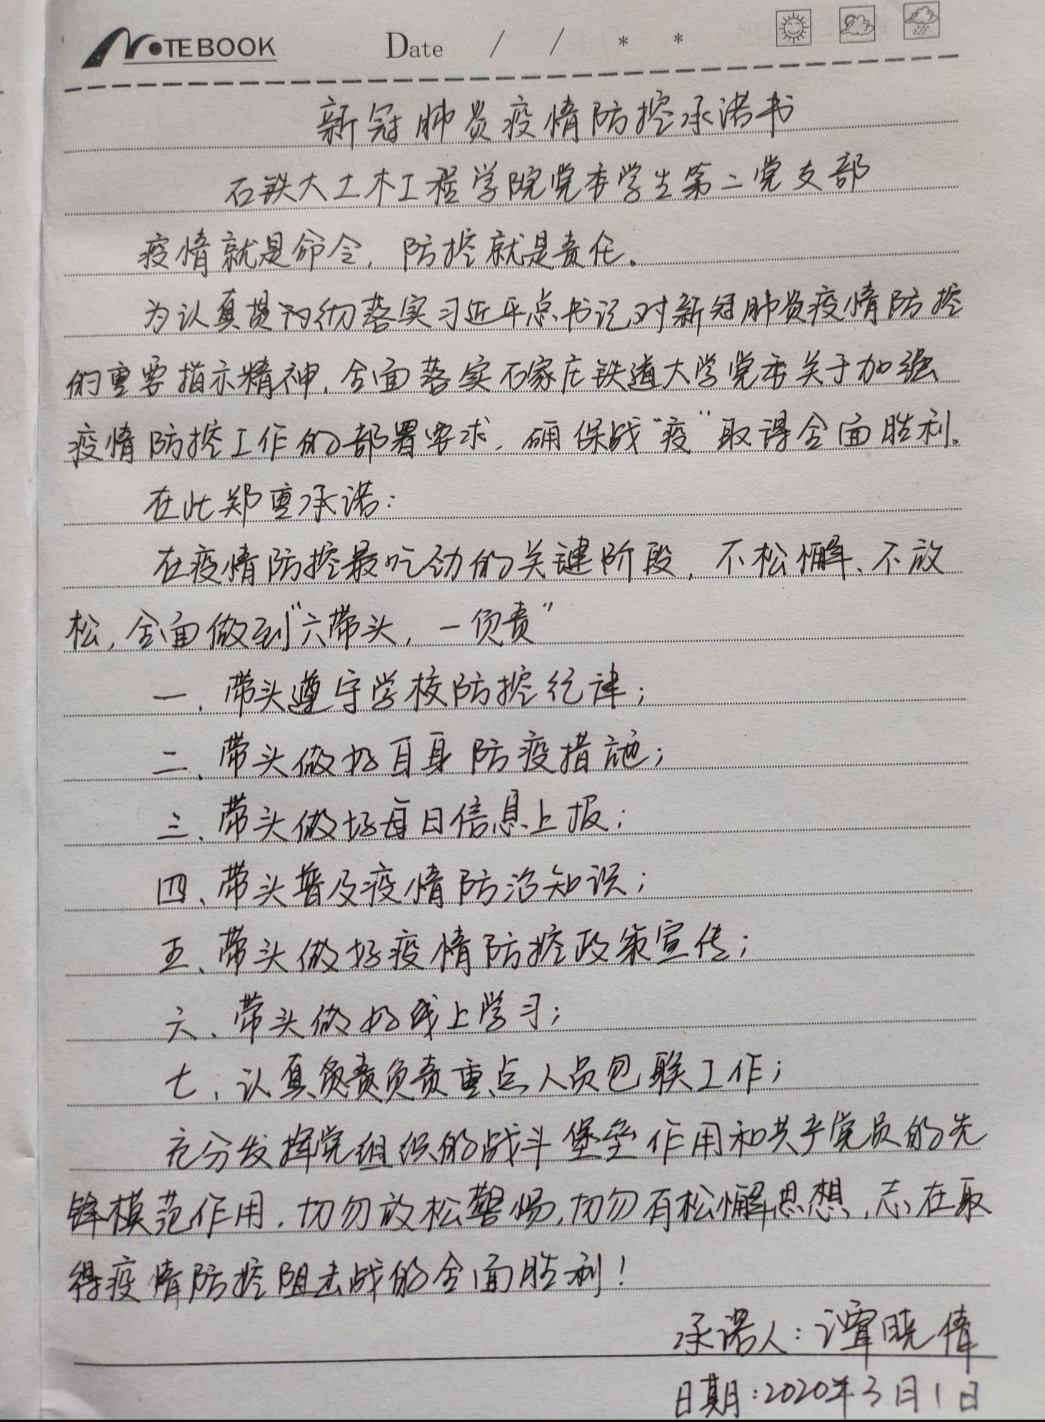 NOTEBOOK Date / / * *
新冠肺炎疫情防控承诺书
石铁大土木工程学院党委学生第二党支部
疫情就是命令，防控就是责任。
为认真贯彻落实习近平总书记对新冠肺炎疫情防控
的重要指示精神，全面落实石家庄铁道大学党委关于加强
疫情防控工作的部署要求，确保战“疫”取得全面胜利。
在此郑重承诺：
在疫情防控最吃劲的关键阶段，不松懈、不放
松，全面做到“六带头，一负责”
一、带头遵守学校防控纪律；
二、带头做好自身防疫措施；
三、带头做好每日信息上报；
四、带头普及疫情防治知识；
五、带头做好疫情防控政策宣传；
六、带头做好线上学习；
七、认真负责负责重点人员包联工作；
充分发挥党组织的战斗堡垒作用和共产党员的先
锋模范作用，切勿放松警惕，切勿有松懈思想，志在取
得疫情防控阻击战的全面胜利！
承诺人：谭晓倩
日期：2020年3月1日